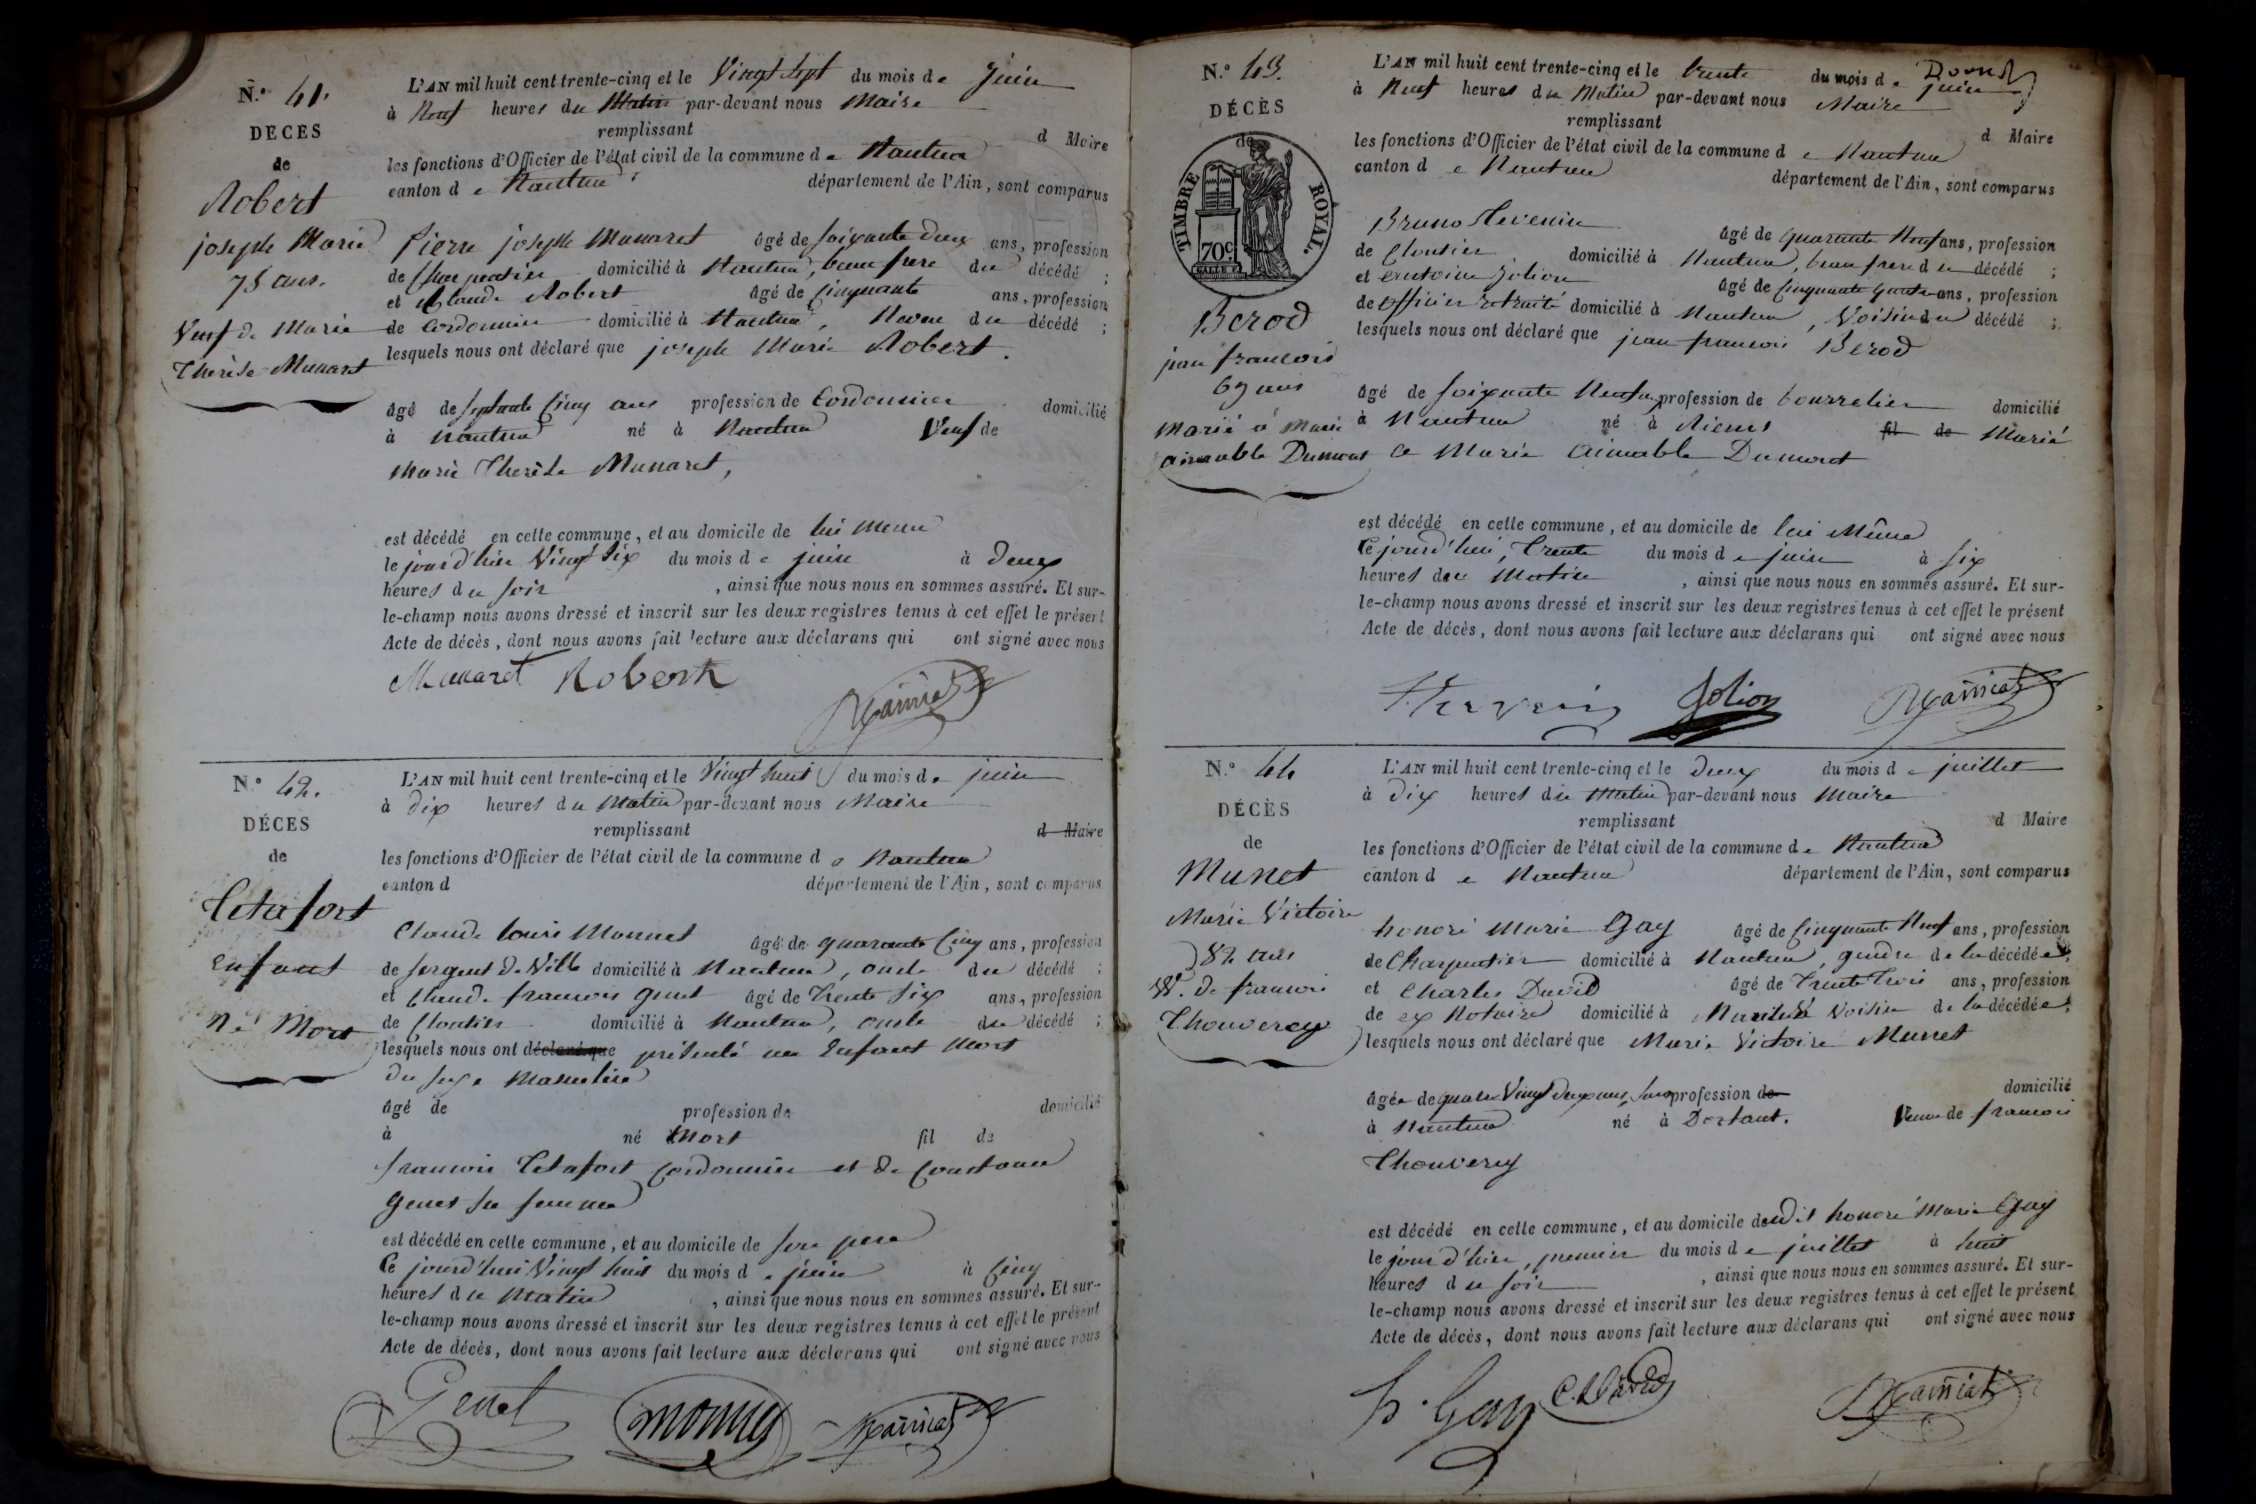 N.° 41.
DECES
de
Robert
joseph Marie
75 ans.
Veuf de Marie
Therèse Munaret
L'AN mil huit cent trente-cinq et le Vingt sept du mois de juin
à Neuf heures du Matin par-devant nous Maire
remplissant
d Maire
les fonctions d'Officier de l'état civil de la commune de Nantua
canton de Nantua département de l'Ain, sont comparus
Pierre joseph Munaret âgé de soixante deux ans, profession
de Charpentier domicilié à Nantua, beau frere du décédé ;
et Claude Robert âgé de Cinquante ans, profession
de Cordonnier domicilié à Nantua, Neveu du décédé ;
lesquels nous ont déclaré que joseph Marie Robert.
âgé de septante Cinq ans profession de Cordonnier domicilié
à Nantua né à Nantua Veuf de
Marie Therèse Munaret,
est décédé en cette commune, et au domicile de lui Meme
le jour d'hier Vingt six du mois de juin à Deux
heures du soir , ainsi que nous nous en sommes assuré. Et sur-
le-champ nous avons dressé et inscrit sur les deux registres tenus à cet effet le présent
Acte de décès, dont nous avons fait lecture aux déclarans qui ont signé avec nous
Munaret Robert
N.° 42.
DÉCES
de
Tetafort
Enfant
Né Mort
L'AN mil huit cent trente-cinq et le Vingt huit du mois de juin
à Dix heures du Matin par-devant nous Maire
remplissant
d Maire
les fonctions d'Officier de l'état civil de la commune de Nantua
canton d département de l'Ain, sont comparus
Claude Louis Monnet âgé de quarante Cinq ans, profession
de sergent de Ville domicilié à Nantua, oncle du décédé ;
et Claude francois Genet âgé de Trente six ans, profession
de Cloutier domicilié à Nantua, oncle du décédé ;
lesquels nous ont déclaré que présenté un Enfant Mort
du sexe Masculin
âgé de profession de domicilié
à né Mort fil de
francois Tetafort Cordonnier et de Constance
Genet sa femme
est décédé en cette commune, et au domicile de son pere
Ce jourd'hui Vingt huit du mois de juin à Cinq
heures du Matin , ainsi que nous nous en sommes assuré. Et sur-
le-champ nous avons dressé et inscrit sur les deux registres tenus à cet effet le présent
Acte de décès, dont nous avons fait lecture aux déclarans qui ont signé avec nous
Genet
N.° 43.
DÉCÈS
de
TIMBRE ROYAL.
70c
Berod
jean francois
69 ans
Marié à Marie
aimable Dumont
L'AN mil huit cent trente-cinq et le Trente du mois de juin
à Neuf heures du Matin par-devant nous Maire
remplissant
d Maire
les fonctions d'Officier de l'état civil de la commune de Nantua
canton de Nantua département de l'Ain, sont comparus
Bruno âgé de quarante Neuf ans, profession
de Cloutier domicilié à Nantua, beau frere du décédé ;
et antoine Jolion âgé de Cinquante quatre ans, profession
de officier retraité domicilié à Nantua, Voisin du décédé ;
lesquels nous ont déclaré que jean francois Berod
âgé de soixante Neuf ans profession de bourrelier domicilié
à Nantua né à fil de Marié
a Marie aimable Dumont
est décédé en cette commune, et au domicile de lui Même
Ce jourd'hui, Trente du mois de juin à six
heures du Matin , ainsi que nous nous en sommes assuré. Et sur-
le-champ nous avons dressé et inscrit sur les deux registres tenus à cet effet le présent
Acte de décès, dont nous avons fait lecture aux déclarans qui ont signé avec nous
Jolion
N.° 44
DÉCÈS
de
Munet
Marie Victoire
82 ans
Ve. de francois
Thouverey
L'AN mil huit cent trente-cinq et le Deux du mois de juillet
à Dix heures du Matin par-devant nous Maire
remplissant
d Maire
les fonctions d'Officier de l'état civil de la commune de Nantua
canton de Nantua département de l'Ain, sont comparus
honoré Marie Gay âgé de Cinquante Neuf ans, profession
de Charpentier domicilié à Nantua, gendre de la décédée ;
et Charles David âgé de Trente Trois ans, profession
de ex Notaire domicilié à Nantua Voisin de la décédée ;
lesquels nous ont déclaré que Marie Victoire Munet
âgée de quatre Vingt deux ans, sans profession de domicilié
à Nantua né à Dortant. Veuve de francois
Thouverey
est décédé en cette commune, et au domicile dudit honoré Marie Gay
le jour d'hier, premier du mois de juillet à huit
heures du soir , ainsi que nous nous en sommes assuré. Et sur-
le-champ nous avons dressé et inscrit sur les deux registres tenus à cet effet le présent
Acte de décès, dont nous avons fait lecture aux déclarans qui ont signé avec nous
h. Gay C. David